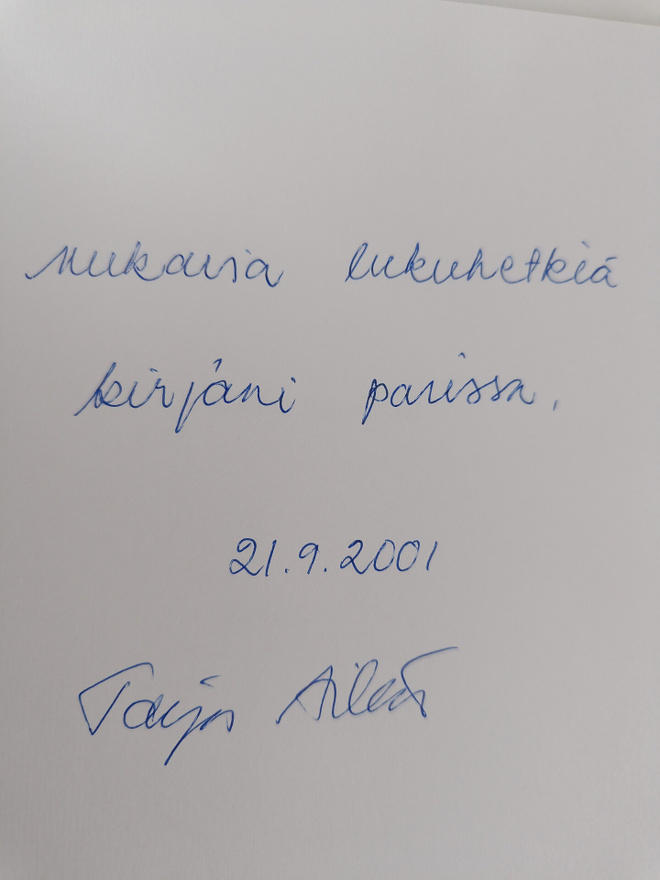 Mukavia lukuhetkiä
kirjani parissa.
21.9.2001
Taija